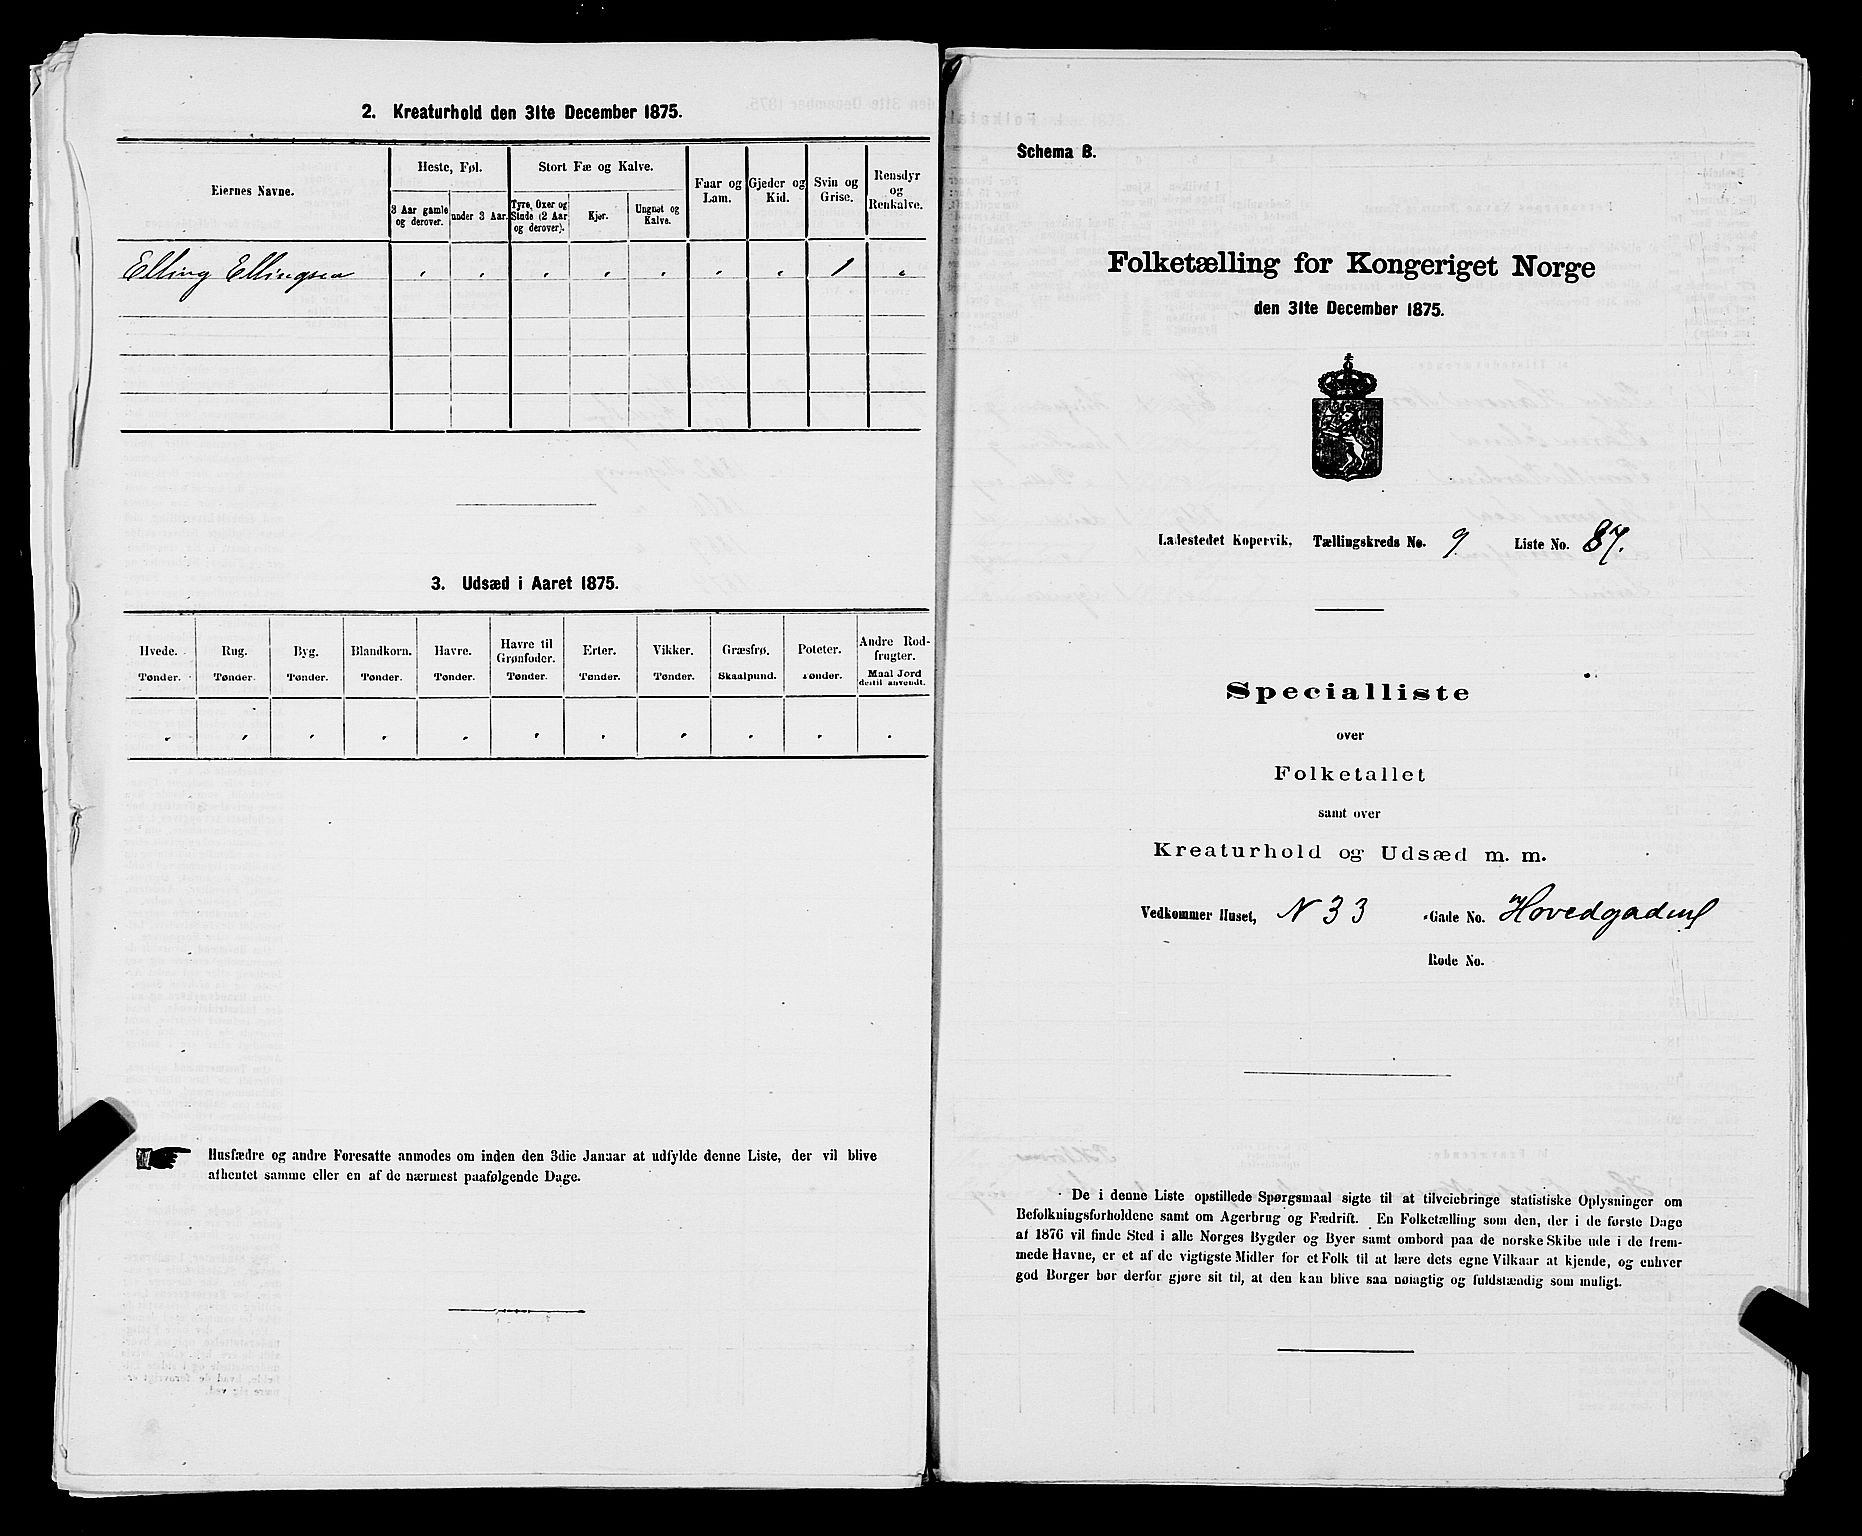 2. Kreaturhold den 31te December 1875.
Eiernes Navne.
Heste, Føl.
Stort Fæ og Kalve.
Faar og Lam.
Gjeder og Kid.
Svin og Grise.
Rensdyr og Renkalve.
3 Aar gamle og derover.
under 3 Aar.
Tyre, Oxer og Stude (2 Aar og derover).
Kjør.
Ungnøt og Kalve.
Elling Ellingsen " " " " " " " 1 "
3. Udsæd i Aaret 1875.
Hvede. Rug. Byg. Blandkorn. Havre. Havre til Grønfoder. Erter. Vikker. Græsfrø. Poteter. Andre Rodfrugter.
Tønder. Tønder. Tønder. Tønder. Tønder. Tønder. Tønder. Tønder. Skaalpund. Tønder. Maal Jord dertil anvendt.
" " " " " " " " " " "
Husfædre og andre Foresatte anmodes om inden den 3die Januar at udfylde denne Liste, der vil blive
afhentet samme eller en af de nærmest paafølgende Dage.
Schema B.
Folketælling for Kongeriget Norge
den 31te December 1875.
Ladestedet Kopervik. Tællingskreds No. 9 Liste No. 87.
Specialliste
over
Folketallet
samt over
Kreaturhold og Udsæd m. m.
Vedkommer Huset, N 33 Gade No. Hovedgaden
Rode No.
De i denne Liste opstillede Spørgsmaal sigte til at tilveiebringe statistiske Oplysninger om
Befolkningsforholdene samt om Agerbrug og Fædrift. En Folketælling som den, der i de første Dage
af 1876 vil finde Sted i alle Norges Bygder og Byer samt ombord paa de norske Skibe ude i de frem-
mede Havne, er et af de vigtigste Midler for et Folk til at lære dets egne Vilkaar at kjende, og enhver
god Borger bør derfor gjøre sit til, at den kan blive saa nøiagtig og fuldstændig som muligt.